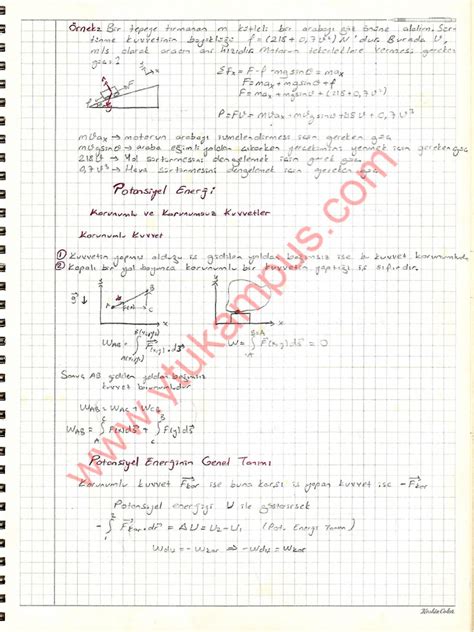 Örnek: Bir tepeye tırmanan m kütleli bir arabayı göz önüne alalım. Sür-
tünme kuvvetinin büyüklüğü f = (218 + 0,7 v²) N 'dur. Burada v,
m/s olarak aracın hızıdır. Motorun tekerleklere vermesi gereken
güç = ?
ΣFx = F - f - mg sinθ = max
F = max + mg sinθ + f
F = max + mg sinθ + (218 + 0,7 v²)
P = Fv = mvax + mvg sinθ + 218v + 0,7v³
mvax → motorun arabayı ivmelendirmesi için gereken güç
mvg sinθ → araba eğimli yoldan çıkarken yenmek için gereken güç
218v → Yol sürtünmesini dengelemek için gerek güç
0,7v³ → Hava sürtünmesini dengelemek için gereken güç
Potansiyel Enerji
Korunumlu ve Korunumsuz Kuvvetler
Korunumlu Kuvvet
① Kuvvetin yapmış olduğu iş gidilen yoldan bağımsız ise bu kuvvet korunumludur.
② Kapalı bir yol boyunca korunumlu bir kuvvetin yaptığı iş sıfırdır.
y
B
A
C
x
y
x
W = ∫ F(x,y) ds = 0
B=A
A
Sonuç AB gidilen yoldan bağımsız
kuvvet korunumludur.
WAB = WAC + WCB
Potansiyel Enerjinin Genel Tanımı
Korunumlu kuvvet Fkor ise buna karşı iş yapan kuvvet ise -Fkor
Potansiyel enerjiyi U ile gösterirsek
-∫ Fkor . dr = ΔU = U2 - U1 (Pot. Enerji Tanımı)
Wdış = -Wkor ⇒ -Wdış = Wkor
www.ytukampus.com